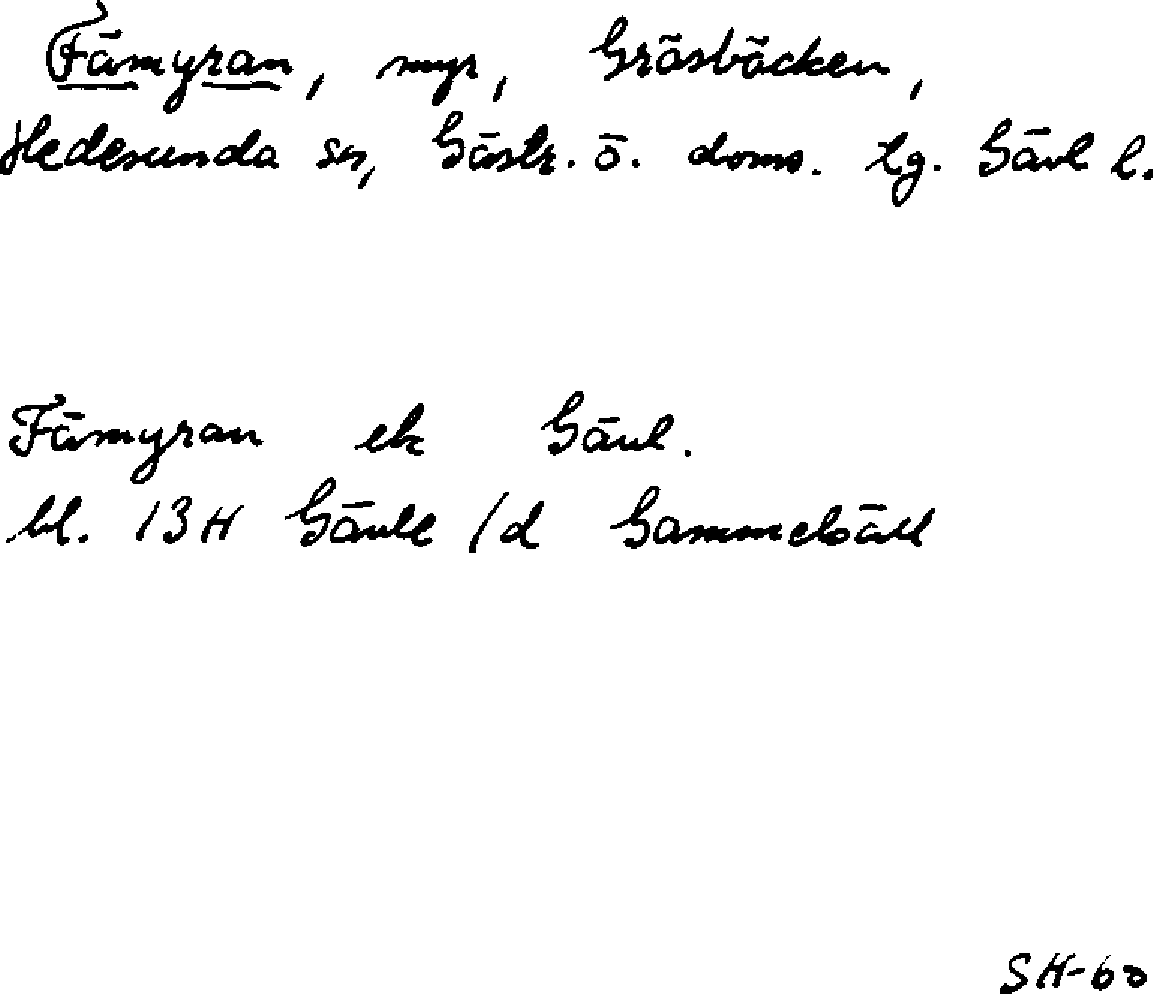 Fämyran, myr, Gräsbäcken,
Hedesunda sn, Gästr. ö. doms. tg. Gävl l.
Fämyran ek Gävl.
bl. 13H Gävle /d Gammelsäll
SH-60